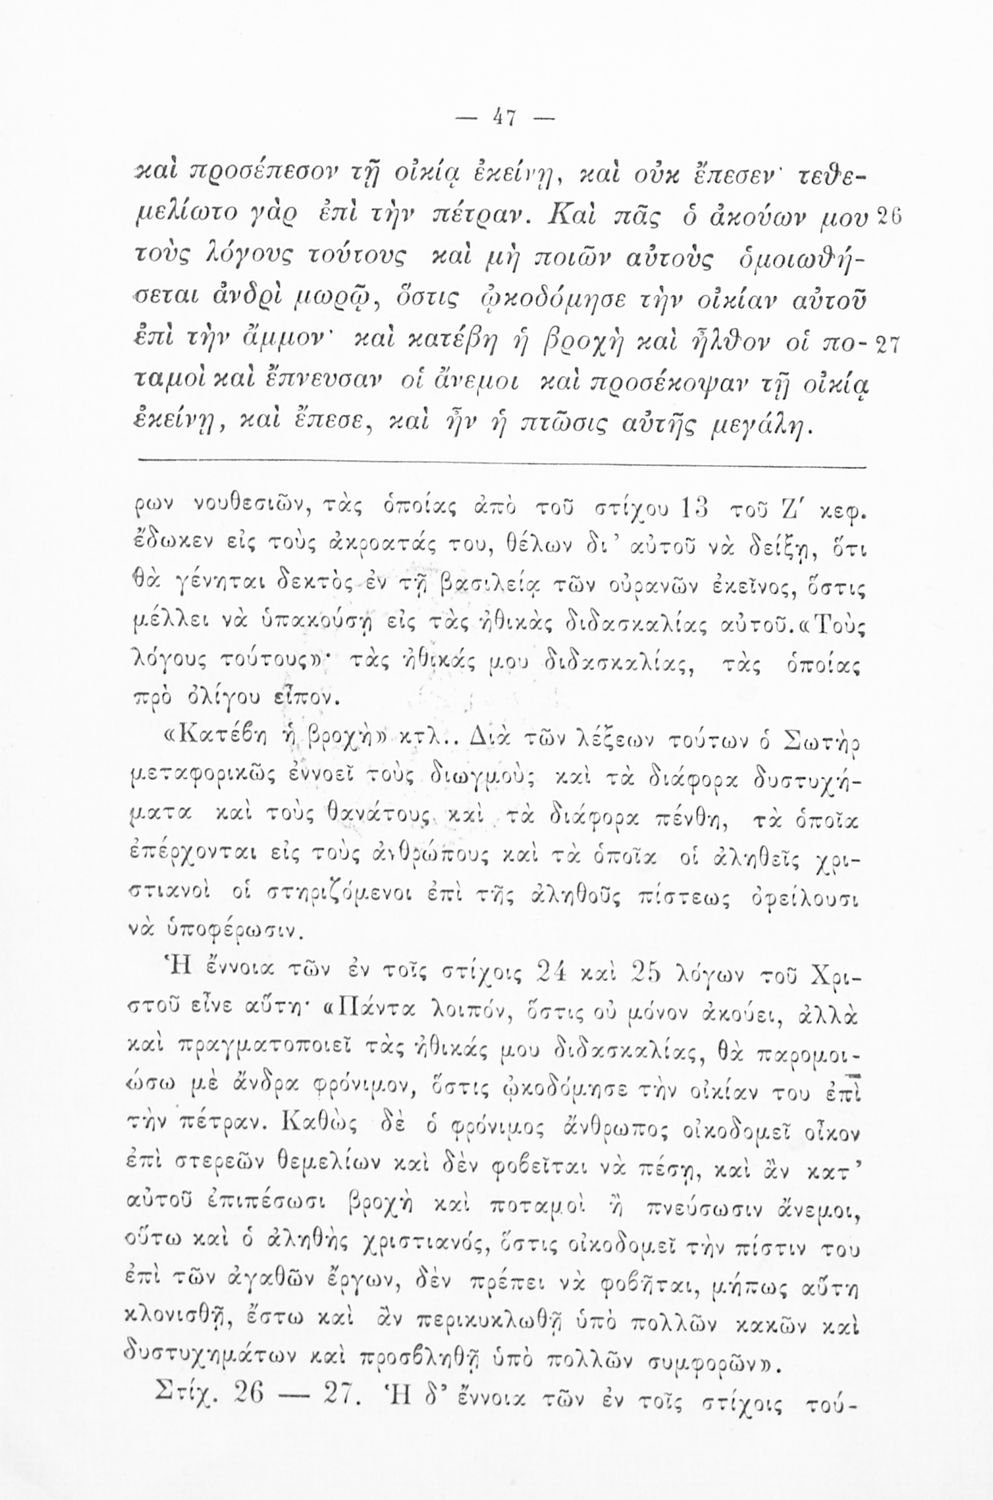 — 47 —
καὶ προσέπεσον τῇ οἰκίᾳ ἐκείνῃ, καὶ οὐκ ἔπεσεν· τεθε-
μελίωτο γὰρ ἐπὶ τὴν πέτραν. Καὶ πᾶς ὁ ἀκούων μου 26
τοὺς λόγους τούτους καὶ μὴ ποιῶν αὐτοὺς ὁμοιωθή-
σεται ἀνδρὶ μωρῷ, ὅστις ᾠκοδόμησε τὴν οἰκίαν αὐτοῦ
ἐπὶ τὴν ἄμμον· καὶ κατέβη ἡ βροχὴ καὶ ἦλθον οἱ πο- 27
ταμοὶ καὶ ἔπνευσαν οἱ ἄνεμοι καὶ προσέκοψαν τῇ οἰκίᾳ
ἐκείνῃ, καὶ ἔπεσε, καὶ ἦν ἡ πτῶσις αὐτῆς μεγάλη.
ρων νουθεσιῶν, τὰς ὁποίας ἀπὸ τοῦ στίχου 13 τοῦ Ζ′ κεφ.
ἔδωκεν εἰς τοὺς ἀκροατάς του, θέλων δι’ αὐτοῦ νὰ δείξῃ, ὅτι
θὰ γένηται δεκτὸς ἐν τῇ βασιλείᾳ τῶν οὐρανῶν ἐκεῖνος, ὅστις
μέλλει νὰ ὑπακούσῃ εἰς τὰς ἠθικὰς διδασκαλίας αὐτοῦ. «Τοὺς
λόγους τούτους»· τὰς ἠθικάς μου διδασκαλίας, τὰς ὁποίας
πρὸ ὀλίγου εἶπον.
«Κατέβη ἡ βροχὴ» κτλ.. Διὰ τῶν λέξεων τούτων ὁ Σωτὴρ
μεταφορικῶς ἐννοεῖ τοὺς διωγμοὺς καὶ τὰ διάφορα δυστυχή-
ματα καὶ τοὺς θανάτους καὶ τὰ διάφορα πένθη, τὰ ὁποῖα
ἐπέρχονται εἰς τοὺς ἀνθρώπους καὶ τὰ ὁποῖα οἱ ἀληθεῖς χρι-
στιανοὶ οἱ στηριζόμενοι ἐπὶ τῆς ἀληθοῦς πίστεως ὀφείλουσι
νὰ ὑποφέρωσιν.
Ἡ ἔννοια τῶν ἐν τοῖς στίχοις 24 καὶ 25 λόγων τοῦ Χρι-
στοῦ εἶνε αὕτη· «Πάντα λοιπόν, ὅστις οὐ μόνον ἀκούει, ἀλλὰ
καὶ πραγματοποιεῖ τὰς ἠθικάς μου διδασκαλίας, θὰ παρομοι-
ώσω μὲ ἄνδρα φρόνιμον, ὅστις ᾠκοδόμησε τὴν οἰκίαν του ἐπὶ
τὴν πέτραν. Καθὼς δὲ ὁ φρόνιμος ἄνθρωπος οἰκοδομεῖ οἶκον
ἐπὶ στερεῶν θεμελίων καὶ δὲν φοβεῖται νὰ πέσῃ, καὶ ἂν κατ’
αὐτοῦ ἐπιπέσωσι βροχὴ καὶ ποταμοὶ ἢ πνεύσωσιν ἄνεμοι,
οὕτω καὶ ὁ ἀληθὴς χριστιανός, ὅστις οἰκοδομεῖ τὴν πίστιν του
ἐπὶ τῶν ἀγαθῶν ἔργων, δὲν πρέπει νὰ φοβῆται, μήπως αὕτη
κλονισθῇ, ἔστω καὶ ἂν περικυκλωθῇ ὑπὸ πολλῶν κακῶν καὶ
δυστυχημάτων καὶ προσβληθῇ ὑπὸ πολλῶν συμφορῶν».
Στίχ. 26 — 27. Ἡ δ’ ἔννοια τῶν ἐν τοῖς στίχοις τού-